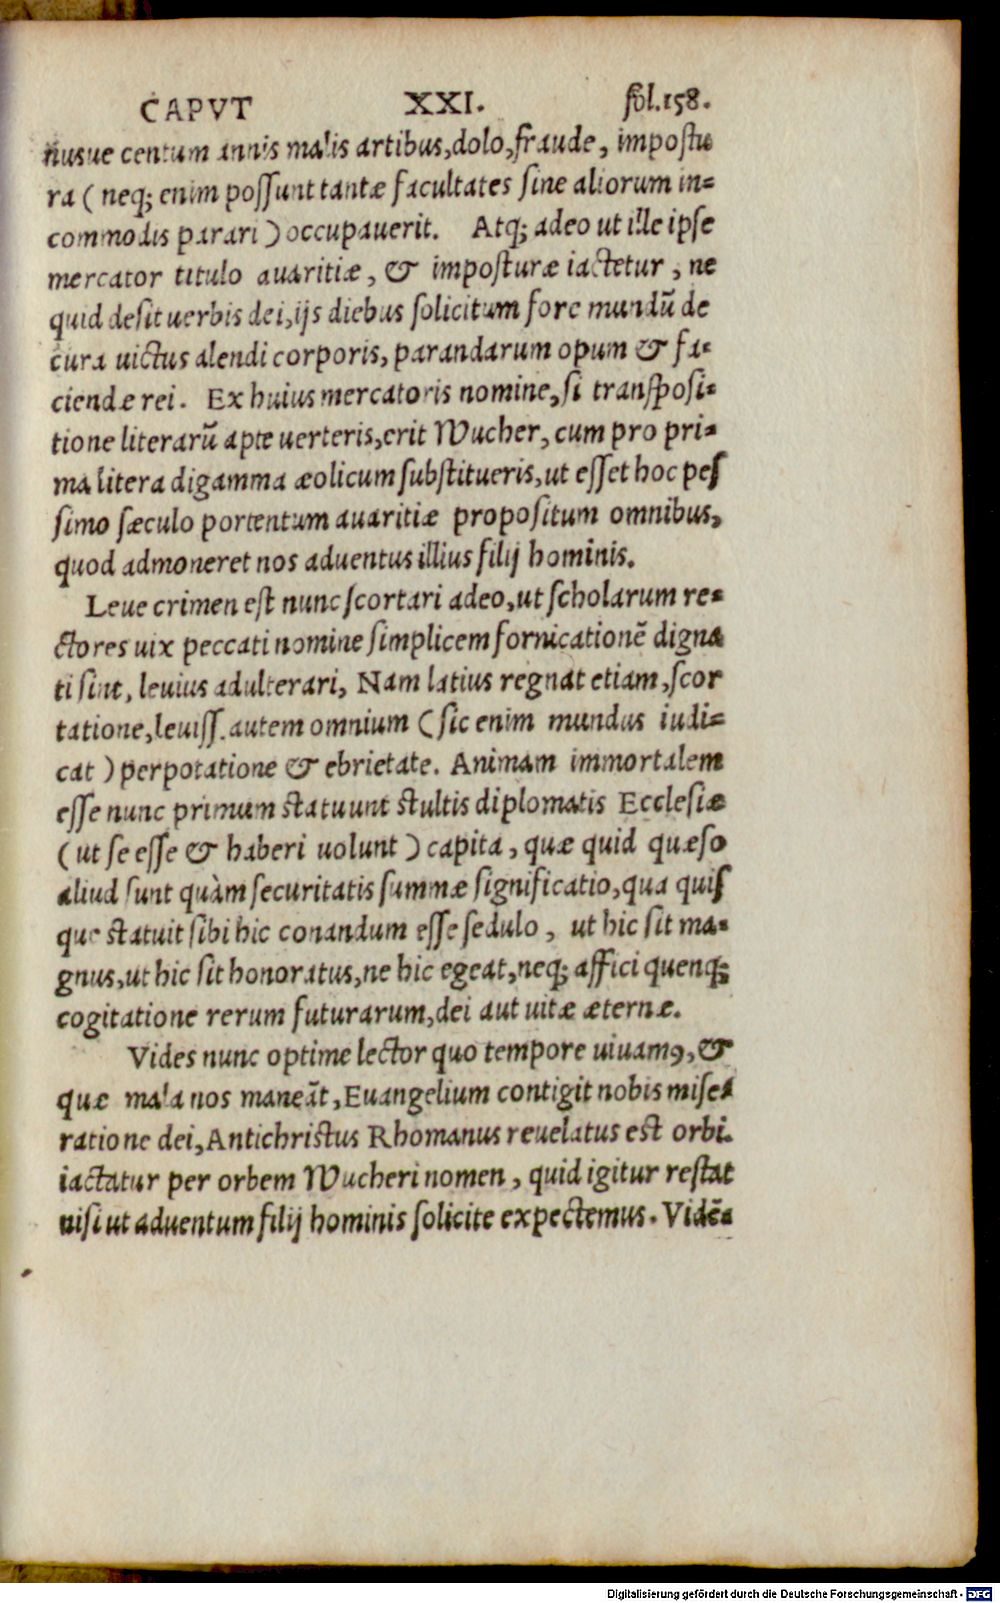 CAPVT XXI. fol.158.
nusue centum annis malis artibus,dolo,fraude, impostu
ra ( neq; enim possunt tantæ facultates sine aliorum in=
commodis parari ) occupauerit. Atq; adeo ut ille ipse
mercator titulo auaritiæ, & imposturæ iactetur, ne
quid desit uerbis dei,ijs diebus solicitum fore mundũ de
cura uictus alendi corporis, parandarum opum & fa=
ciendæ rei. Ex huius mercatoris nomine, si transposi=
tione literarũ apte uerteris,erit Wucher, cum pro pri=
ma litera digamma æolicum substitueris,ut esset hoc pes
simo sæculo portentum auaritiæ propositum omnibus,
quod admoneret nos aduentus illius filij hominis.
Leue crimen est nunc scortari adeo,ut scholarum re=
ctores uix peccati nomine simplicem fornicationẽ digna
ti sint, leuius adulterari, Nam latius regnat etiam,scor
tatione,leuiss. autem omnium ( sic enim mundus iudi=
cat ) perpotatione & ebrietate. Animam immortalem
esse nunc primum statuunt stultis diplomatis Ecclesiæ
( ut se esse & haberi uolunt ) capita, quæ quid quæso
aliud sunt quàm securitatis summæ significatio,qua quis
que statuit sibi hic conandum esse sedulo, ut hic sit ma=
gnus,ut hic sit honoratus,ne hic egeat,neq; affici quenq;
cogitatione rerum futurarum,dei aut uitæ æternæ.
Vides nunc optime lector quo tempore uiuamꝰ,&
quæ mala nos maneãt,Euangelium contigit nobis mise=
ratione dei,Antichristus Rhomanus reuelatus est orbi.
iactatur per orbem Wucheri nomen, quid igitur restat
nisi ut aduentum filij hominis solicite expectemus. Vidẽ=
Digitalisierung gefördert durch die Deutsche Forschungsgemeinschaft - DFG